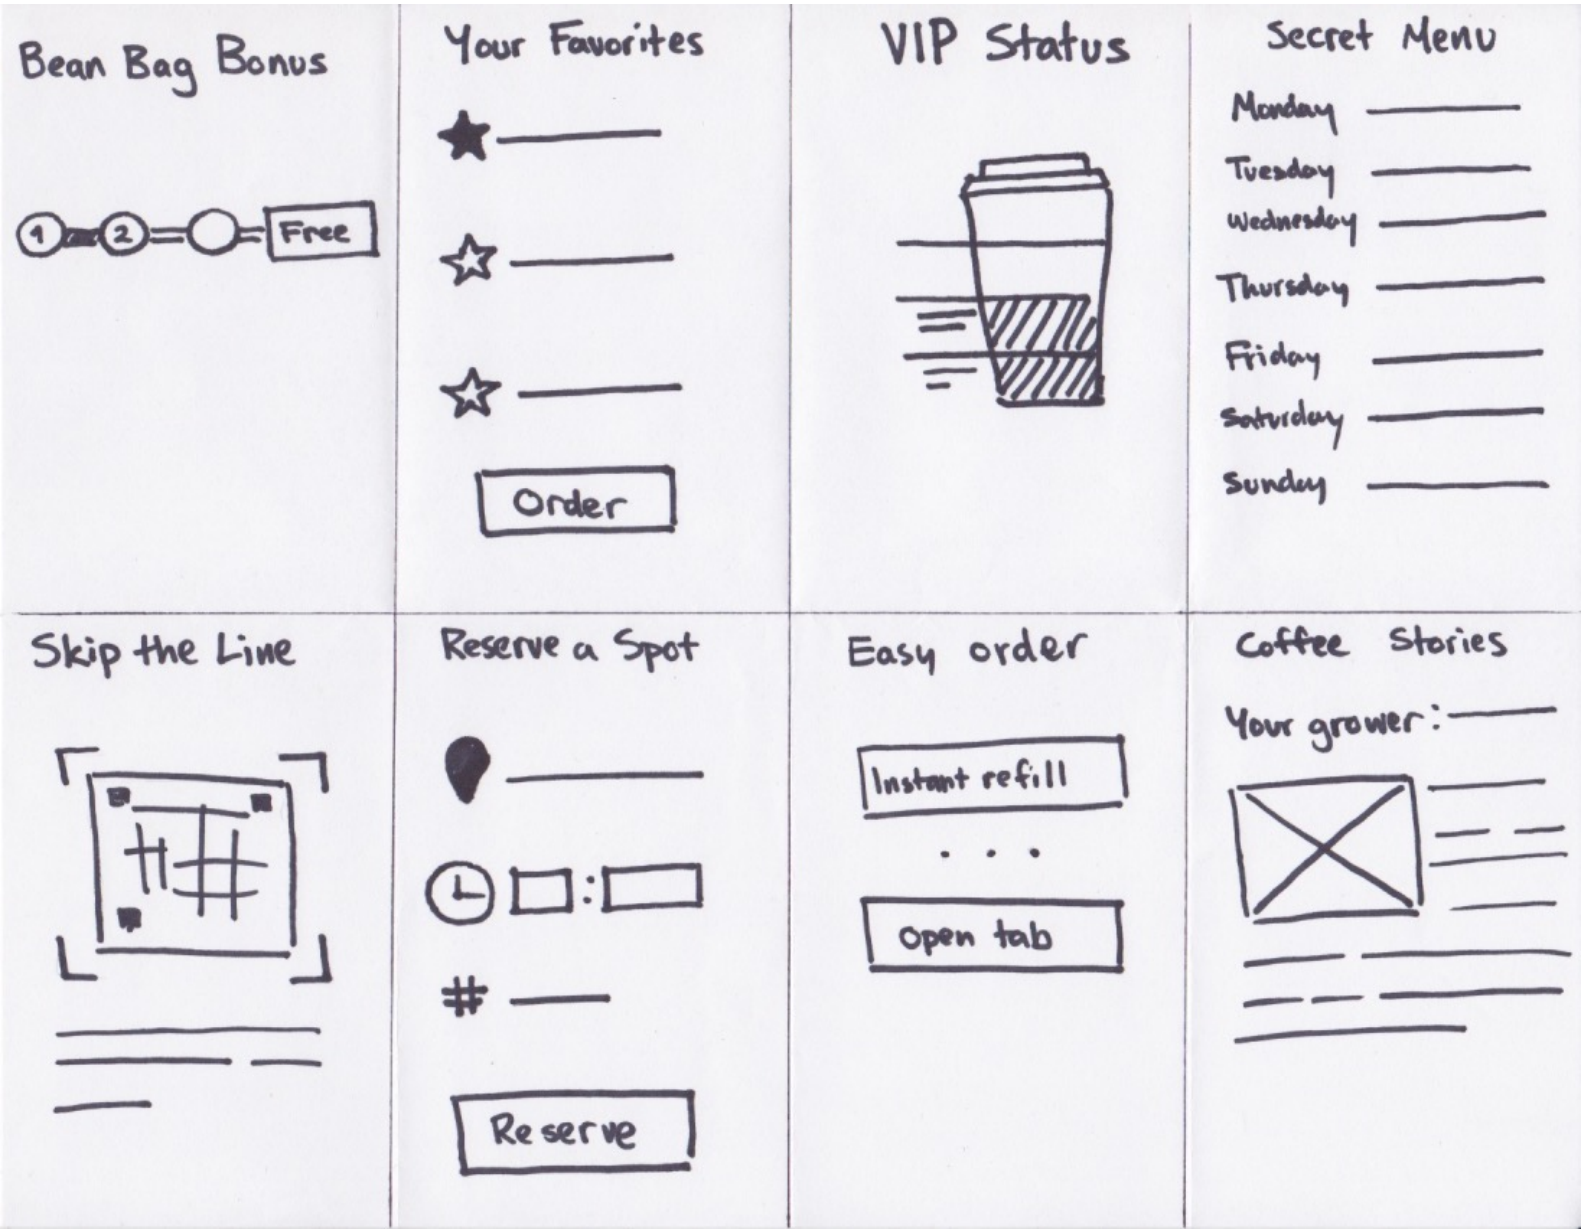 Bean Bag Bonus
1 2 Free
Your Favorites
Order
VIP Status
Secret Menu
Monday
Tuesday
Wednesday
Thursday
Friday
Saturday
Sunday
Skip the Line
Reserve a Spot
:
#
Reserve
Easy order
Instant refill
. . .
Open tab
Coffee Stories
Your grower: